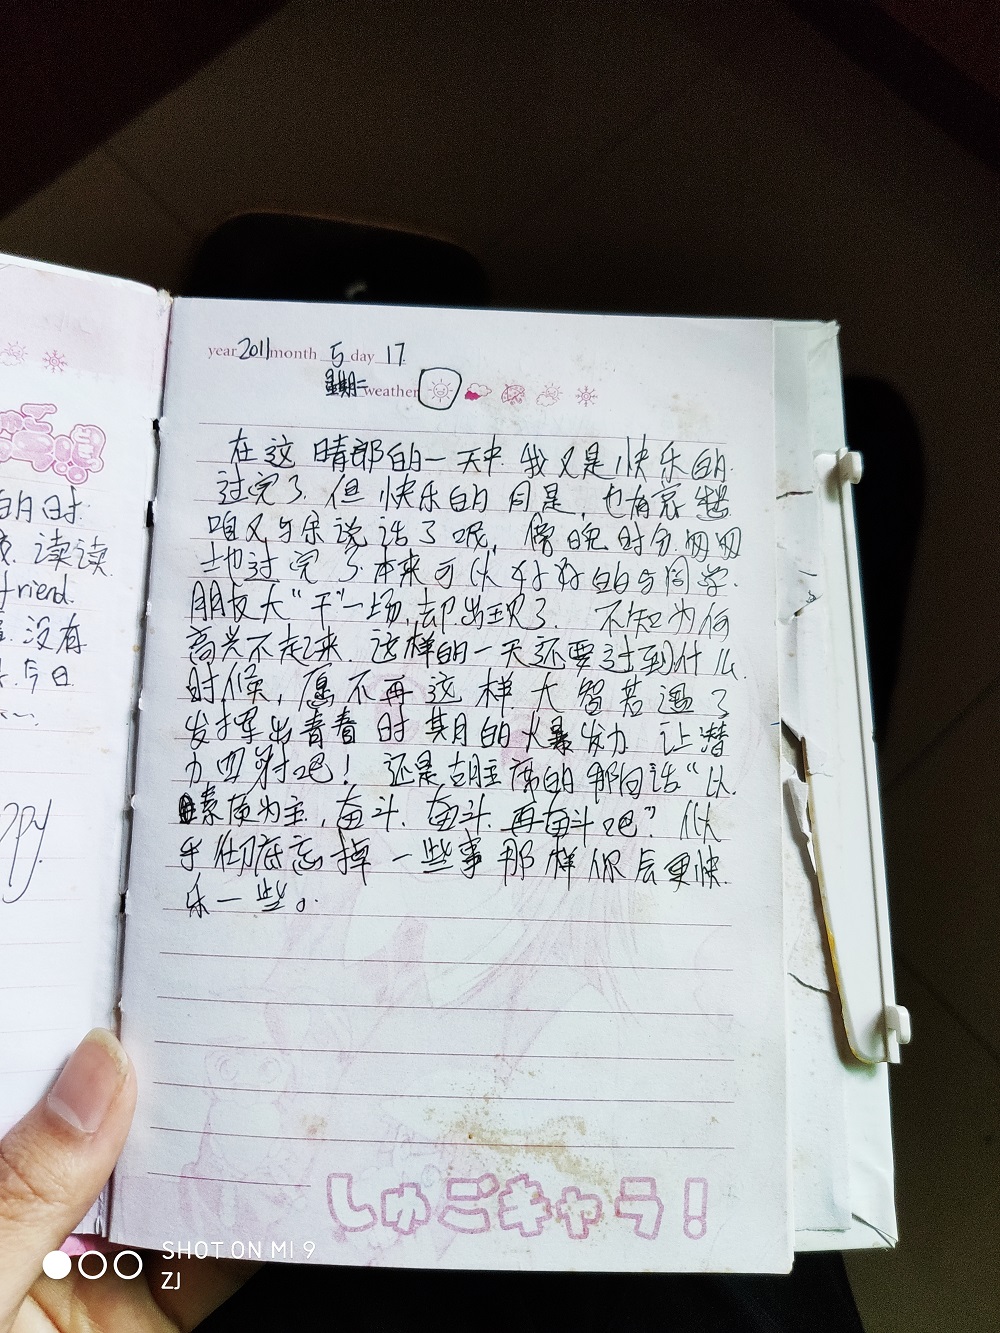 白月时
读读
friend.
没有
今日
ppy
year 2011 month 5 day 17.
星期二 weather
在这晴郎的一天中.我又是快乐的.
过完了.但快乐的同是,也有哀愁
咱又与宋说话了呢,傍晚时分.匆匆
地过完了.本来可以好好的与同学.
朋友大“干”一场,却出现了 不知为何
高兴不起来.这样的一天还要过到什么
时候,愿不再这样大智若愚了
发挥出青春时期的火暴发力 让潜
力四射吧! 还是胡主席的那句话“以.
素质为主,奋斗.奋斗.再奋斗吧”似
乎彻底忘掉一些事那样你会更快.
乐一些。
しゅごキャラ!
SHOT ON MI 9
ZJ